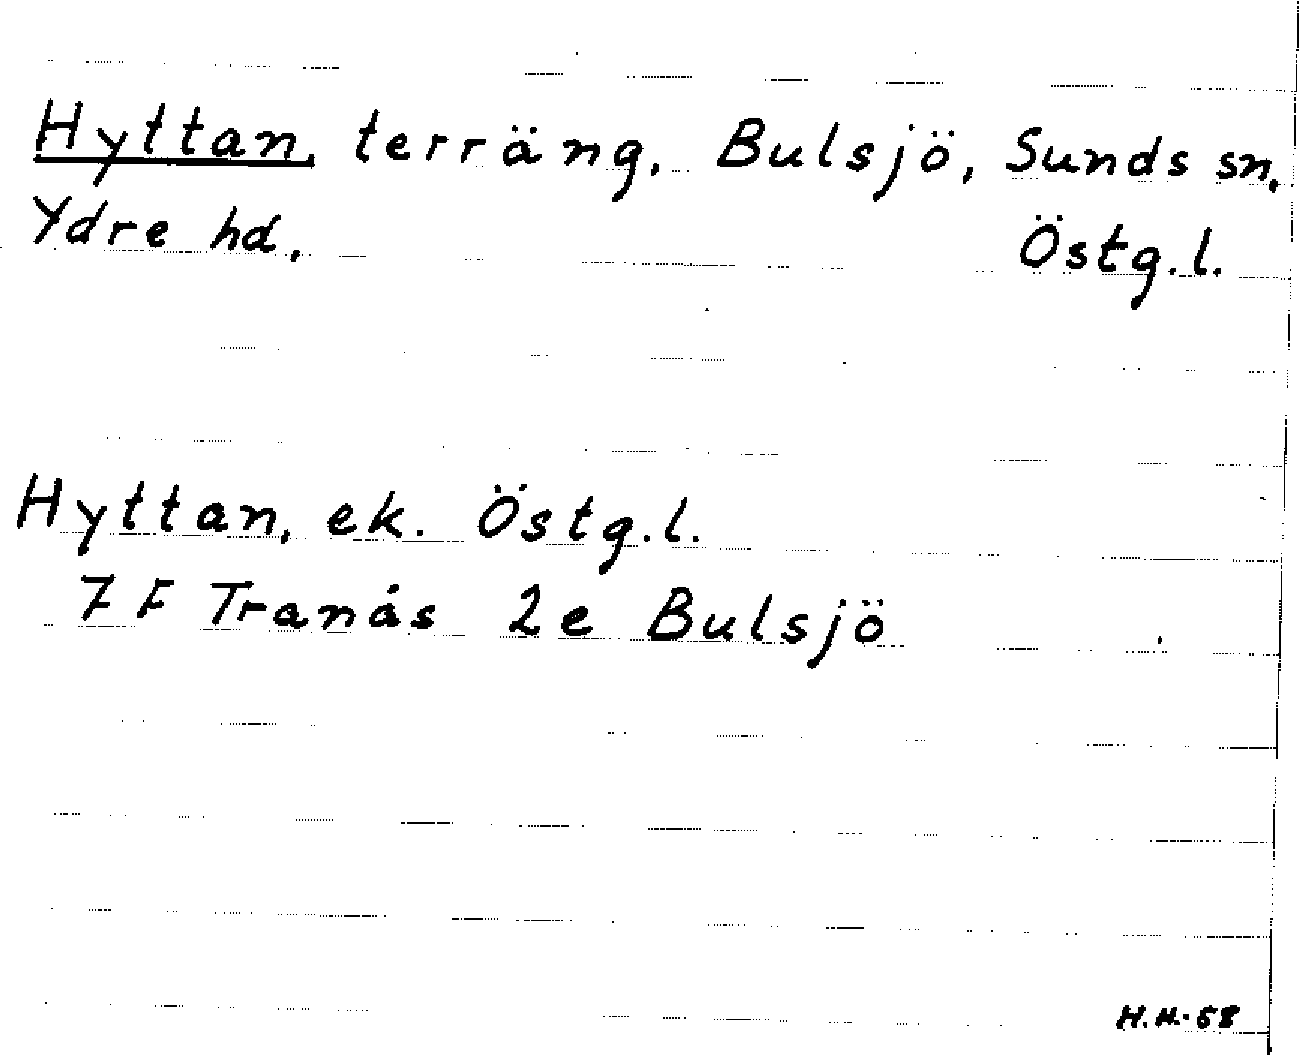 Hyttan, terräng, Bulsjö, Sunds sn,
Ydre hd. Östg.l.
Hyttan, ek. Östg.l.
7F Tranås 2e Bulsjö
H.H.-58